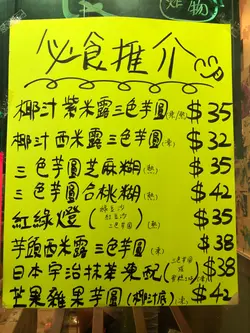 炸物
必食推介
椰汁紫米露三色芋圓(凍/熱) $35
椰汁西米露三色芋圓(凍) $32
三色芋圓芝麻糊(熱) $35
三色芋圓合桃糊(熱) $42
紅綠燈(綠豆沙 紅豆沙 三色芋圓)(熱) $35
芋頭西米露三色芋圓(凍) $38
日本宇治抹茶凍配(三色芋圓) $38
芒果雜果芋圓(椰汁底)(凍) $42